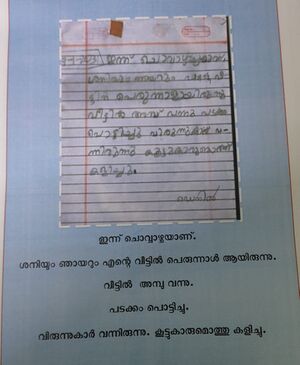 ഇന്ന് ചൊവ്വാഴ്ചയാണ്.
ശനിയും ഞായറും
വീട്ടിൽ അമ്പ് വന്നു പടക്കം
പൊട്ടിച്ചു വിരുന്നുകാർ വ
ന്നിരുന്നു
കളിച്ചു.
ഇന്ന് ചൊവ്വാഴ്ചയാണ്.
ശനിയും ഞായറും എന്റെ വീട്ടിൽ പെരുന്നാൾ ആയിരുന്നു.
വീട്ടിൽ അമ്പു വന്നു.
പടക്കം പൊട്ടിച്ചു.
വിരുന്നുകാർ വന്നിരുന്നു. കൂട്ടുകാരുമൊത്തു കളിച്ചു.